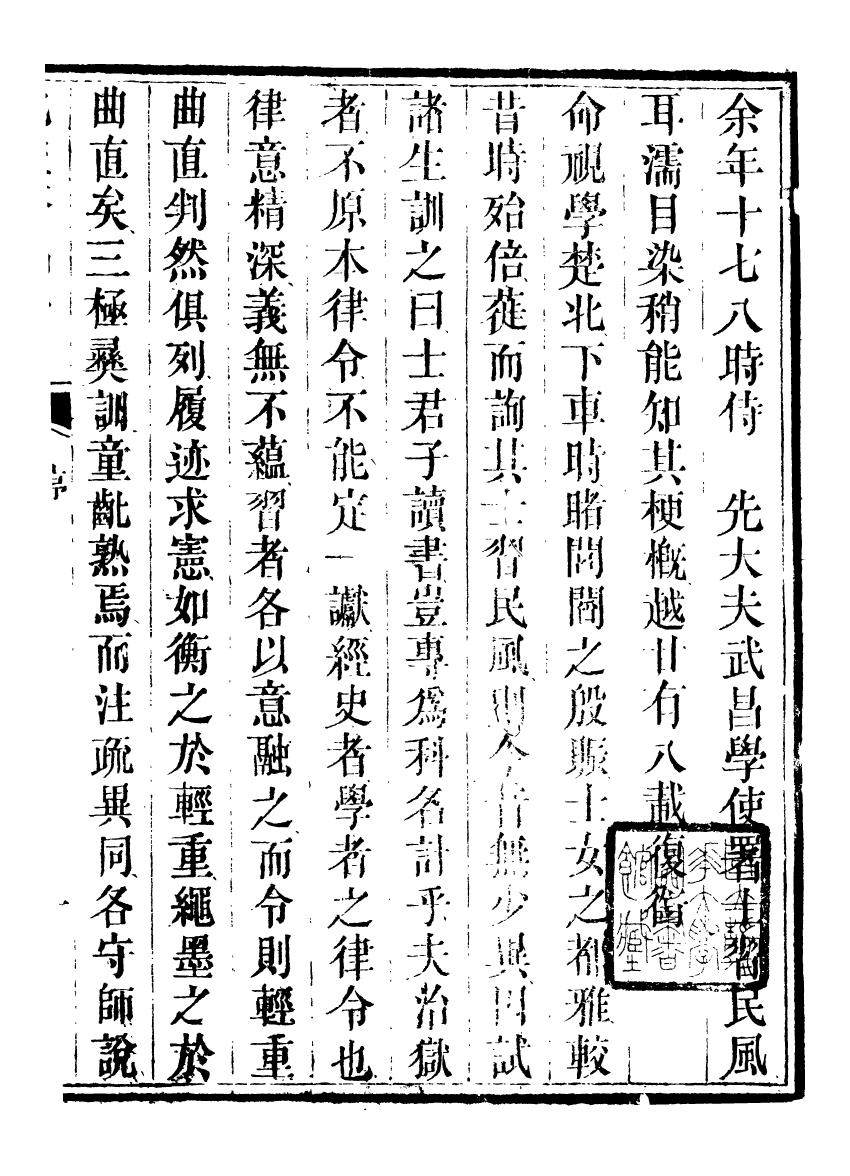 余年十七八時侍　先大夫武昌學使署士習民風
耳濡目染稍能知其梗概越廿有八載復銜
命視學楚北下車時睹閭閻之殷賑士女之都雅較
昔時殆倍蓰而詢其士習民風則今昔無少異因試
諸生訓之曰士君子讀書豈專爲科名計乎夫治獄
者不原本律令不能定一讞經史者學者之律令也
律意精深義無不蘊習者各以意融之而令則輕重
曲直判然俱列履迹求憲如衡之於輕重繩墨之於
曲直矣三極彝訓童齔熟焉而注疏異同各守師說
序
一